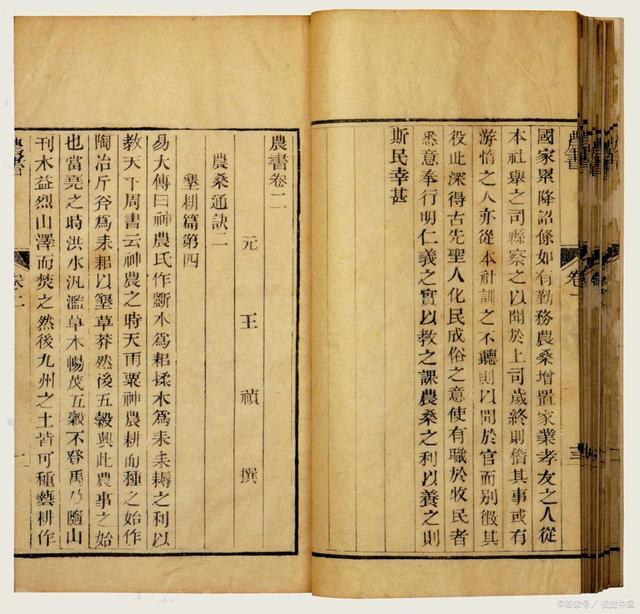 農書
卷一
三
國家累降詔條如有勤務農桑增置家業孝友之人從
本社舉之司縣察之以聞於上司歲終則稽其事或有
游惰之人亦從本社訓之不聽則以聞於官而別徵其
役此深得古先聖人化民成俗之意使有職於牧民者
悉意奉行明仁義之實以教之課農桑之利以養之則
斯民幸甚
農書卷二
元王禎撰
農桑通訣一
墾耕篇第四
易大傳曰神農氏作斵木為耜揉木為耒耒耨之利以
教天下周書云神農之時天雨粟神農耕而種之始作
陶冶斤斧為耒耜以墾草莽然後五穀興此農事之始
也當堯之時洪水汎濫草木暢茂五穀不登禹乃隨山
刊木益烈山澤而焚之然後九州之土皆可種藝耕作
農書
卷二
一
©百家号/视觉中国